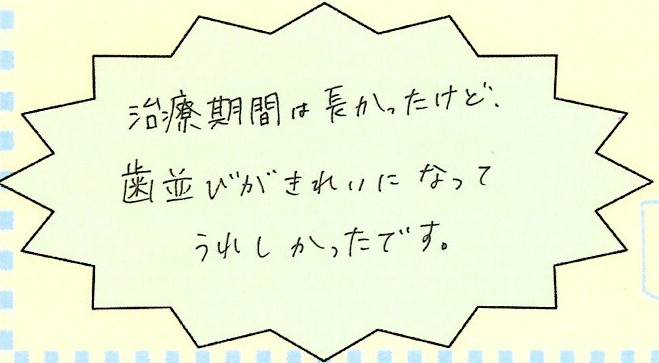 治療期間は長かったけど、
歯並びがきれいになって
うれしかったです。